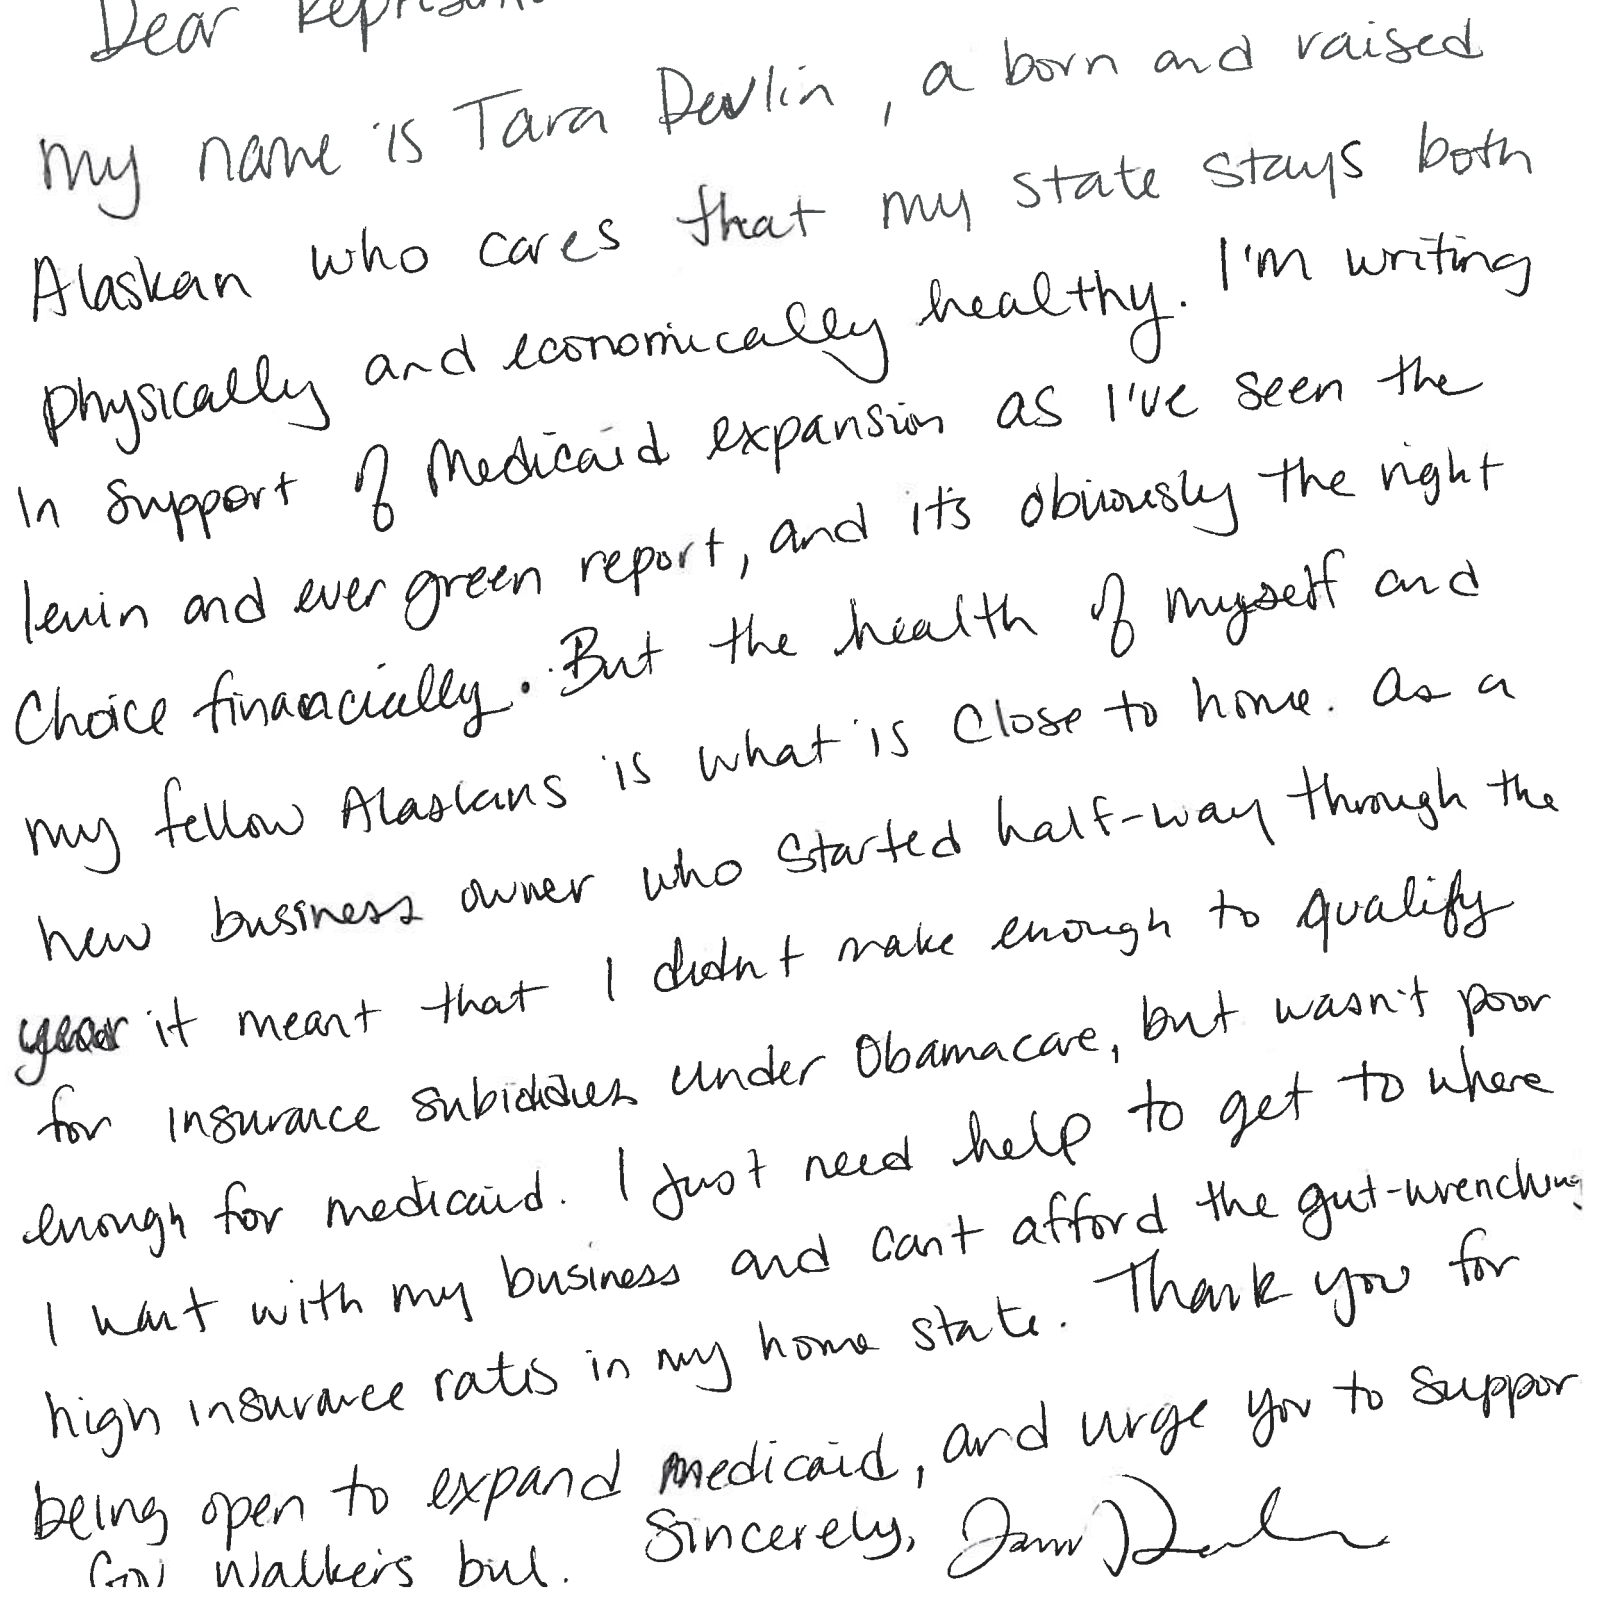 Dear
My name is Tara Devlin, a born and raised
Alaskan who cares that my state stays both
physically and economically healthy. I'm writing
In support of Medicaid expansion as I've seen the
lewin and ever green report, and it's obviously the right
Choice financially. But the health of myself and
my fellow Alaskans is what is close to home. As a
new business owner who started half-way through the
year it meant that I didn't make enough to qualify
for insurance subidides under Obamacare, but wasn't poor
enough for medicaid. I just need help to get to where
I want with my business and can't afford the gut-wrenching
high insurance rates in my home state. Thank you for
being open to expand medicaid, and urge you to suppor
Gov Walkers bill. Sincerely, Tara Devlin